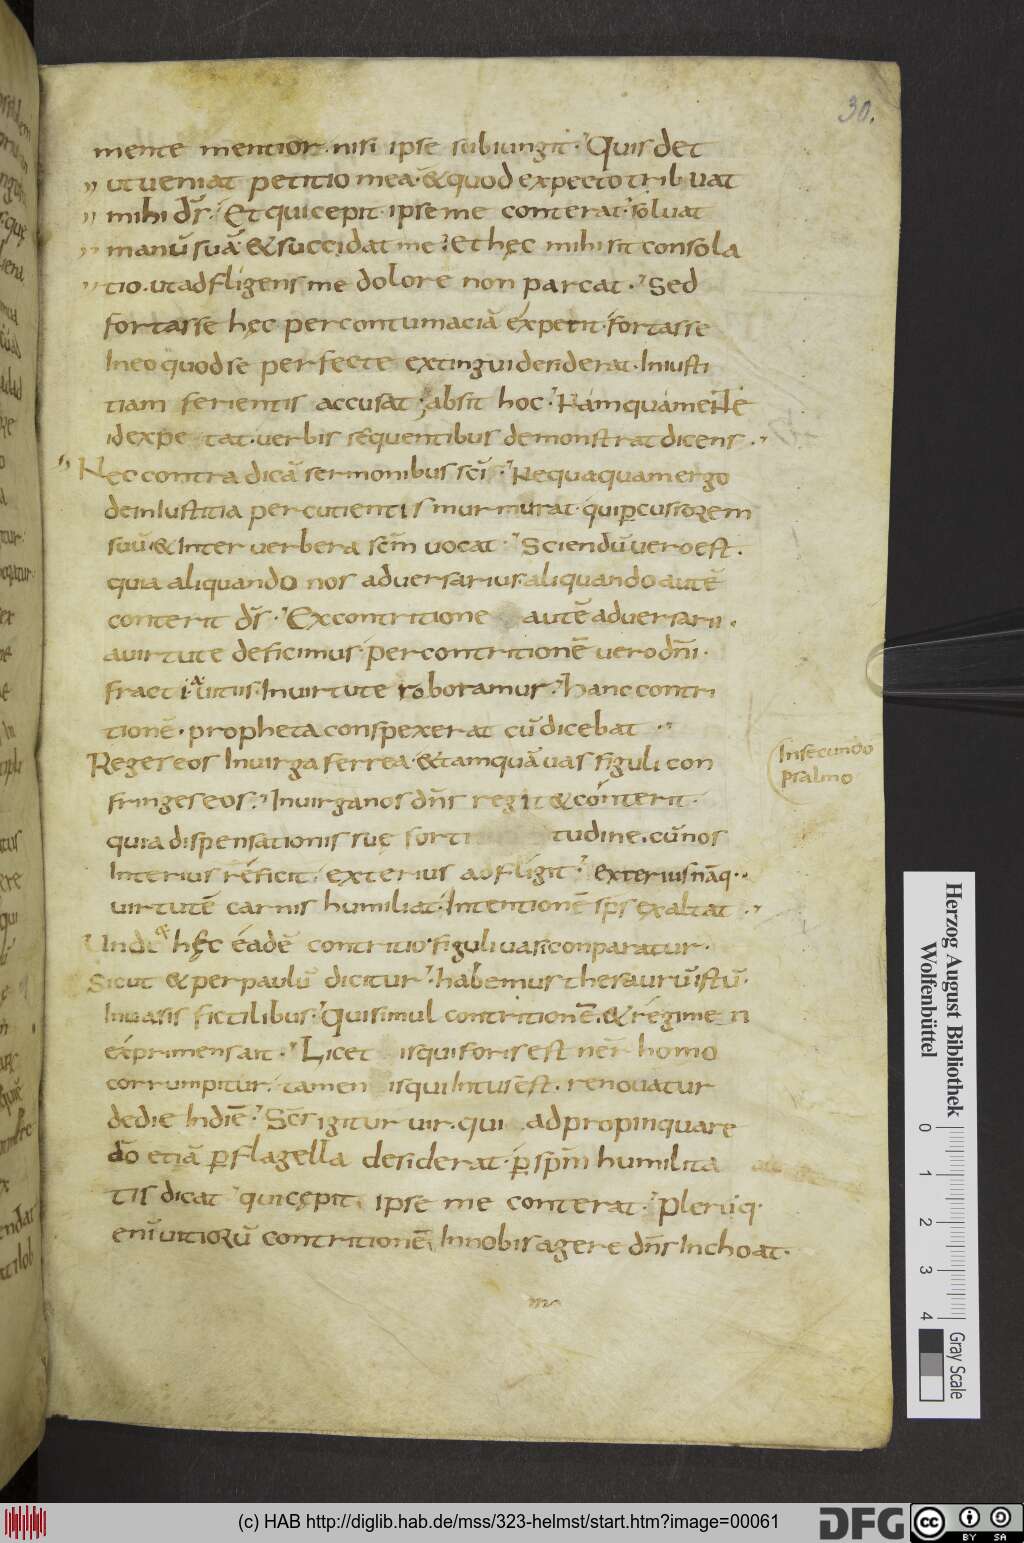 30.
mente mentior. nisi ipse subiungit. Quis det
ut veniat petitio mea. & quod expecto tribuat
mihi d̄s. Et qui cepit. ipse me conterat. soluat
manū suā & succidat me. Et hęc mihi sit consola
tio. ut adfligens me dolore non parcat. Sed
fortasse hęc per contumaciā expetit. fortasse
In eo quod se perfecte extingui desiderat. Iniusti
tiam ferientis accusat. absit hoc. Nam qua mente
id expe tat. verbis sequentibus demonstrat dicens.
Nec contradicā sermonibus sc̄i. Nequaquam ergo
de Iustitia percutientis murmurat. qui ꝑcussorem
suū. & Inter verbera sc̄m vocat. Sciendū vero est.
quia aliquando nos adversarius. aliquando autē
conterit d̄s. Ex contritione autē adversarii.
a virtute deficimus. per contritionē vero dn̄i.
fracti a vitiis. In virtute roboramur. hanc contri
tionē. propheta conspexerat cū dicebat
Reges eos In virga ferrea. & tamquā vas figuli con
fringes eos. In virga nos dn̄s regit & conterit.
quia dispensationis suę forti tudine. cū nos
Interius reficit. exterius adfligit. exterius nāq.
virtutē carnis humiliat. Intentionē sp̄s exaltat
Unde & hęc eadē contritio. figuli vasi conparatur.
Sicut & per paulū dicitur. habemus thesaurū istū.
In vasis fictilibus. Qui simul contritionē. & regimen
exprimens ait. Licet is qui foris est n̄r homo
corrumpitur. tamen is qui Intus ēst. renovatur
de die In diē. Sc̄s igitur vir. qui adpropinquare
d̄o etiā ꝑ flagella desiderat. ꝑ sp̄m humilita
tis dicat qui cępit. ipse me conterat. Plerūq.
enī vitiorū contritionē. In nobis agere dn̄s Inchoat.
In secundo
psalmo
Herzog August Bibliothek
Wolfenbüttel
0 1 2 3 4
Gray Scale
(c) HAB http://diglib.hab.de/mss/323-helmst/start.htm?image=00061
DFG
cc BY SA